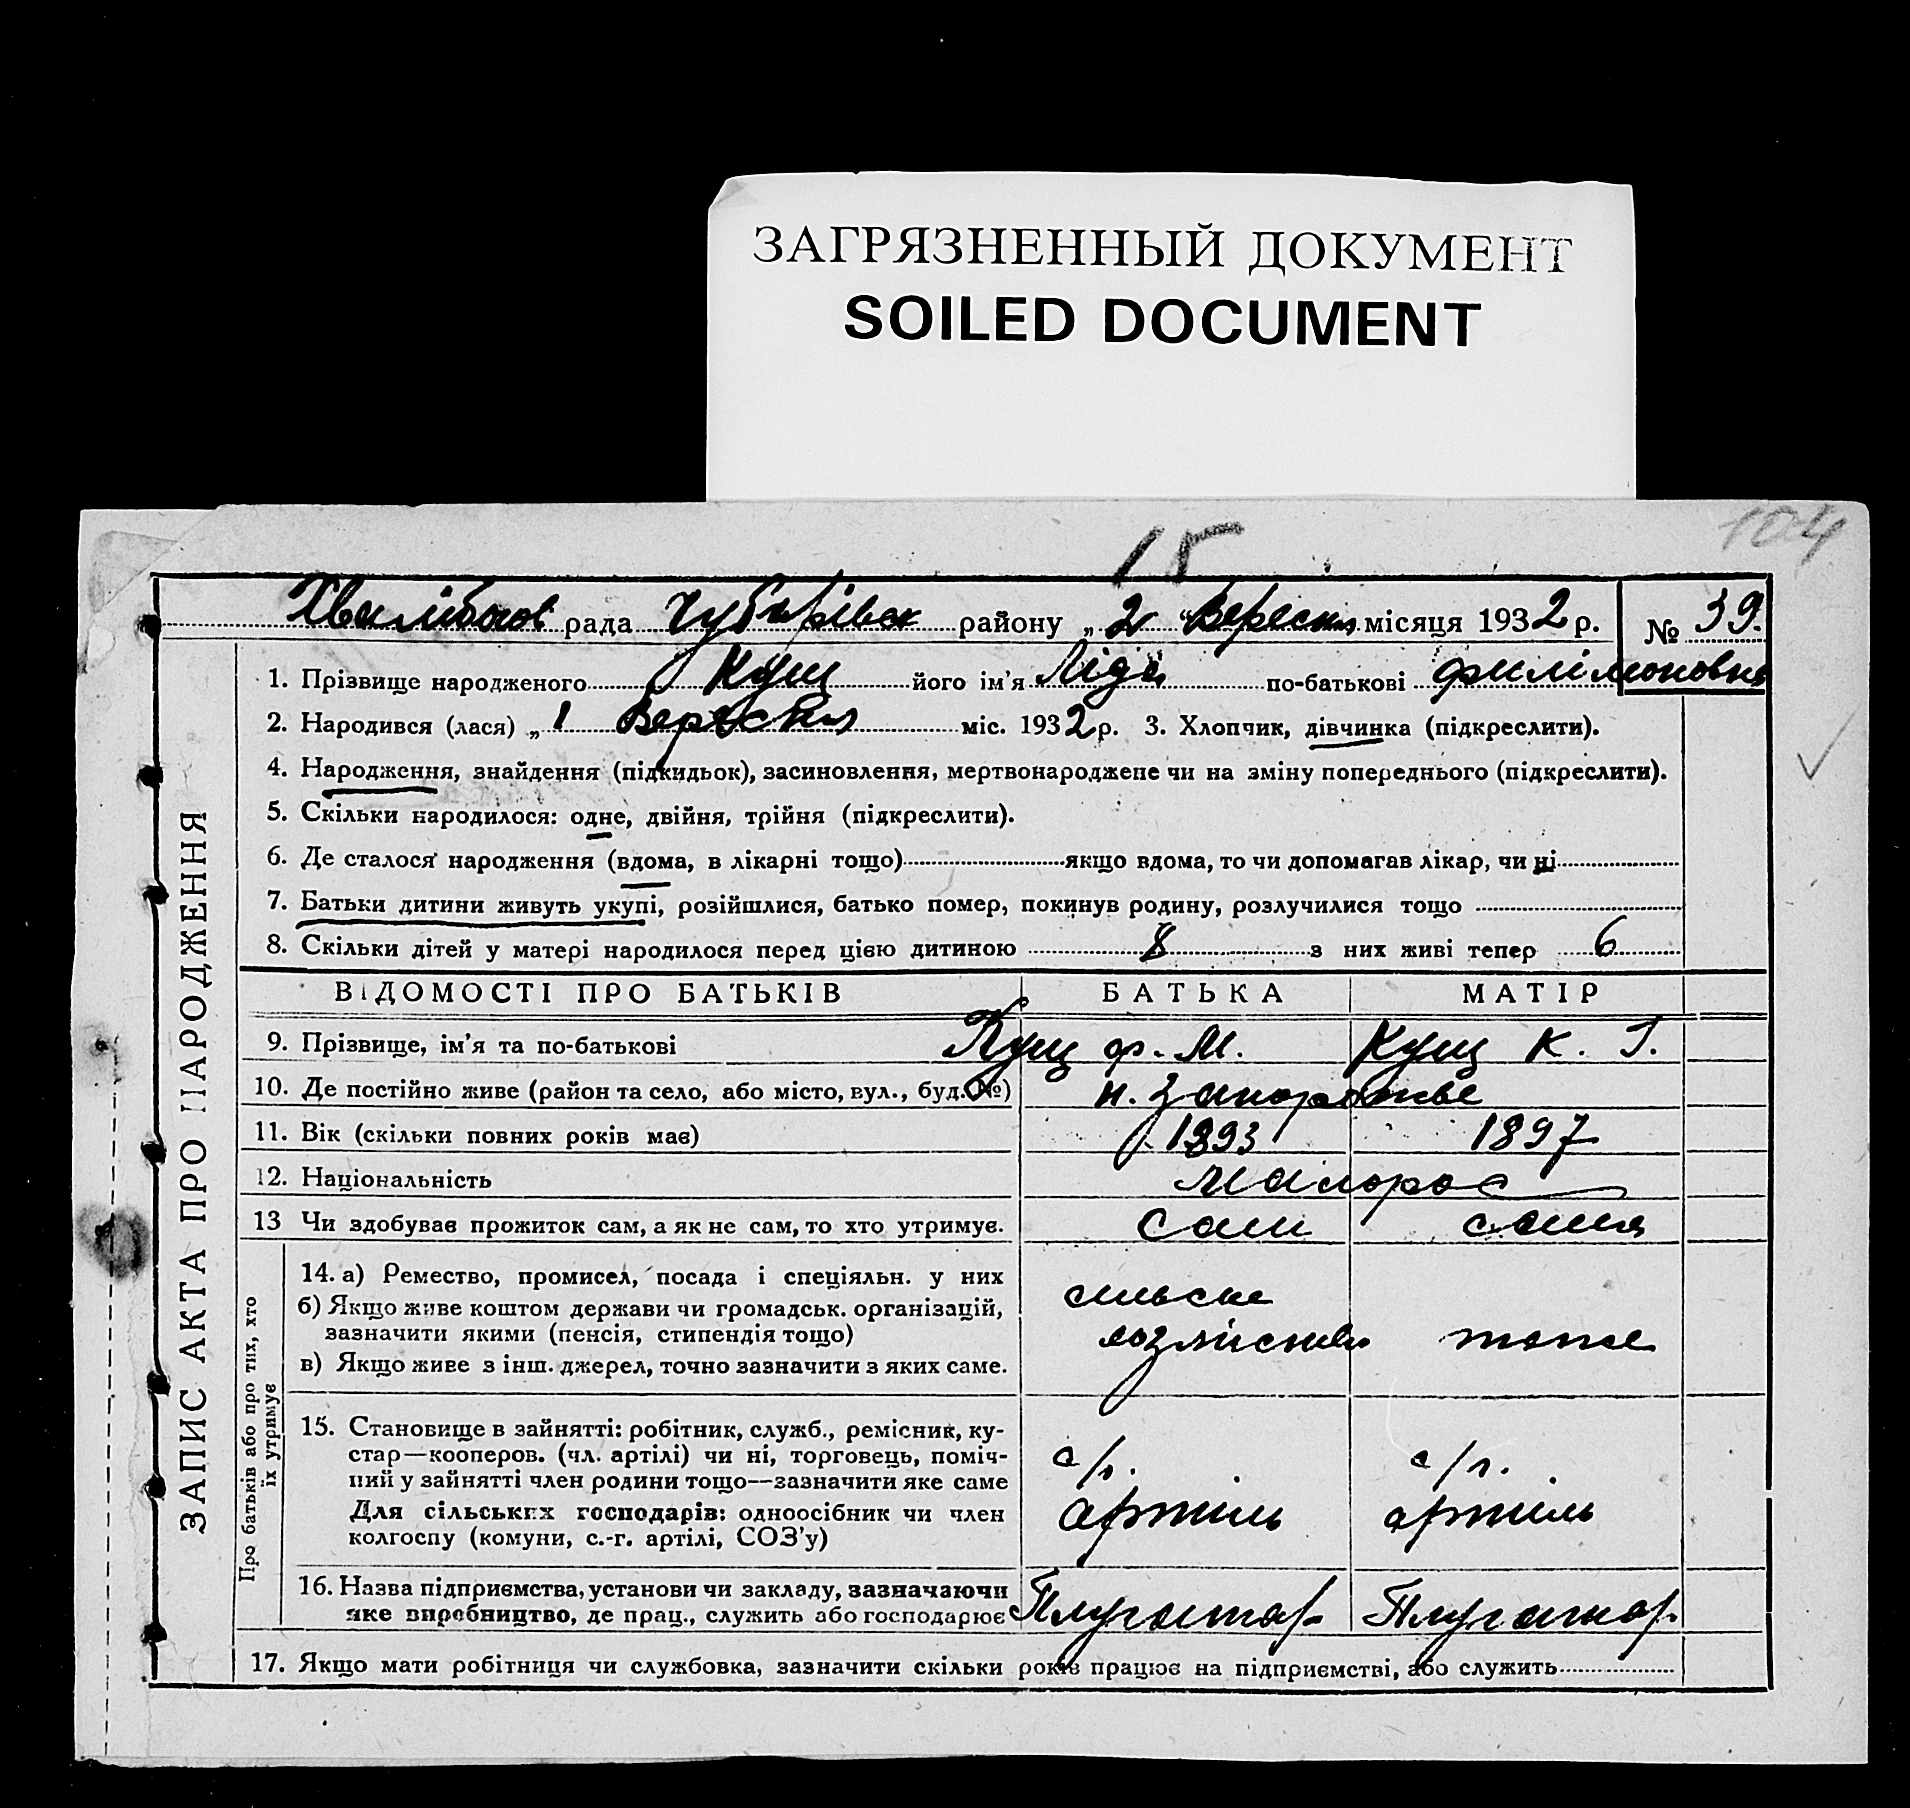 ЗАГРЯЗНЕННЫЙ ДОКУМЕНТ
SOILED DOCUMENT
15
104
рада Чубарівск району „ 2 “ Вересня місяця 1932 р. № 39.
1. Прізвище народженого Кущ його ім’я Ліда по-батькові Филімоновна
2. Народився (лася) „ 1 Вересня міс. 1932 р. 3. Хлопчик, дівчинка (підкреслити).
4. Народження, знайдення (підкидьок), засиновлення, мертвонароджене чи на зміну попереднього (підкреслити).
5. Скільки народилося: одне, двійня, трійня (підкреслити).
6. Де сталося народження (вдома, в лікарні тощо) якщо вдома, то чи допомагав лікар, чи ні
7. Батьки дитини живуть укупі, розійшлися, батько помер, покинув родину, розлучилися тощо
8. Скільки дітей у матері народилося перед цією дитиною 8 з них живі тепер 6
ВІДОМОСТІ ПРО БАТЬКІВ БАТЬКА МАТІР
9. Прізвище, ім’я та по-батькові Кущ Ф. М. Кущ К. І.
10. Де постійно живе (район та село, або місто, вул., буд. №) н. Запорожье
11. Вік (скільки повних років має) 1893 1897
12. Національність Малорос
13 Чи здобував прожиток сам, а як не сам, то хто утримує. Сам сама
14. а) Ремество, промисел, посада і спеціяльн. у них
б) Якщо живе коштом держави чи громадськ. організацій,
зазначити якими (пенсія, стипендія тощо)
в) Якщо живе з інш. джерел, точно зазначити з яких саме.
сильске
тоже
15. Становище в зайнятті: робітник, служб., ремісник, ку-
стар—кооперов. (чл. артілі) чи ні, торговець, поміч-
ний у зайнятті член родини тощо—зазначити яке саме
Для сільських господарів: одноосібник чи член
колгоспу (комуни, с.-г. артілі, СОЗ’у)
артиль артиль
16. Назва підприємства, установи чи закладу, зазначаючи
яке виробництво, де прац., служить або господарює
Плугатар Плугатар
17. Якщо мати робітниця чи службовка, зазначити скільки років працює на підприємстві, або служить
ЗАПИС АКТА ПРО НАРОДЖЕННЯ
Про батьків або про тих, хто
їх утримує